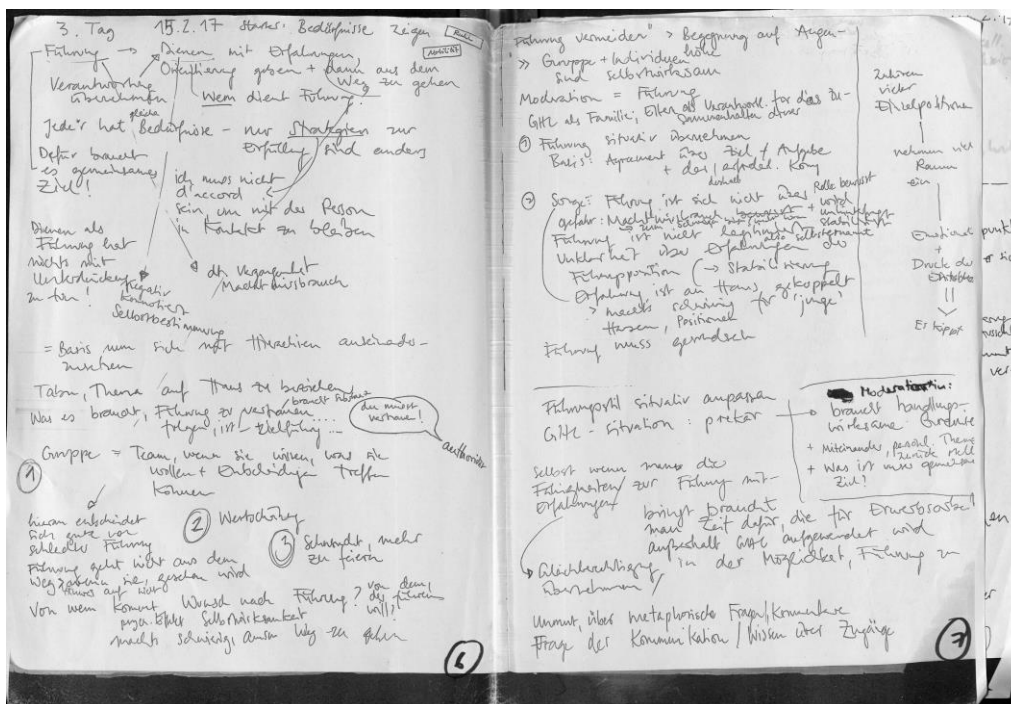 3. Tag 15.2.17 starker: Bedürfnisse zeigen
Führung → Dienen mit Erfahrungen,
Orientierung geben + dann aus dem
Weg zu gehen
Verantwortung
übernehmen
Wem dient Führung?
Jede*r hat gleiche Bedürfnisse - nur Strategien zur
Erfüllung sind anders
Dafür braucht
es gemeinsames
Ziel!
ich muss nicht
d'accord
sein, um mit der Person
in Kontakt zu bleiben
Dienen als
Führung hat
nichts mit
Unterdrückung
zu tun!
negativ
konnotiert
Selbstbestimmung
dch Vergangenheit
Machtmissbrauch
= Basis um sich mit Hierarchien auseinander-
zusetzen
Tabu, Thema auf Haus zu beziehen
Was es braucht, Führung zu vertrauen...
folgen, ist
du musst
vertrauen!
authoritär
Gruppe = Team, wenn sie wissen, was sie
wollen + Entscheidungen treffen
können
1
hieran entscheidet
sich gute von
schlechter Führung
2 Wertschätzung
3 Sehnsucht, mehr
zu feiern
Führung geht nicht aus dem
Weg, wenn sie gesehen wird
Von wem kommt Wunsch nach Führung? von dem,
der führen
will?
Selbstwirksamkeit
macht schwierig, ausm Weg zu gehen
6
Führung vermeiden > Begegnung auf Augen-
höhe
» Gruppe + Individuen
sind selbstwirksam
Moderation = Führung
GHL als Familie; Eltern als Verantwortl. für das Zu-
sammenhalten
1 Führung situativ übernehmen
Basis: Agreement über Ziel + Aufgabe
2 Sorge: Führung ist sich nicht über Rolle bewusst
Gefahr: Machtmissbrauch
Führung ist nicht legitimiert
also selbsternannte
Unklarheit über Erfahrungen der
Führungsposition (→ Stabilisierung
Erfahrung ist an Haus, gekoppelt
> macht schwierig für 'junge'
Hasen, Positionen
Führung muss
Zuhören
vieler
Einzelpositionen
nehmen viel
Raum
ein
Emotionen
+
Druck der
Es kippt
Führungsstil situativ anpassen
GHL-Situation: prekär
Moderation:
braucht handlungs-
wirksame
+ Miteinander, persönl. Themen
zurückstell
+ Was ist unser gemeinsames
Ziel?
selbst wenn man die
Fähigkeiten zur Führung mit-
Erfahrungen
bringt braucht
man Zeit dafür, die für Erwerbsarbeit
außerhalb GHL aufgewendet wird
Gleichberechtigung in der Möglichkeit, Führung zu
übernehmen
Unmut über metaphorische Fragen/Kommentare
Frage der Kommunikation / Wissen über Zugänge
7